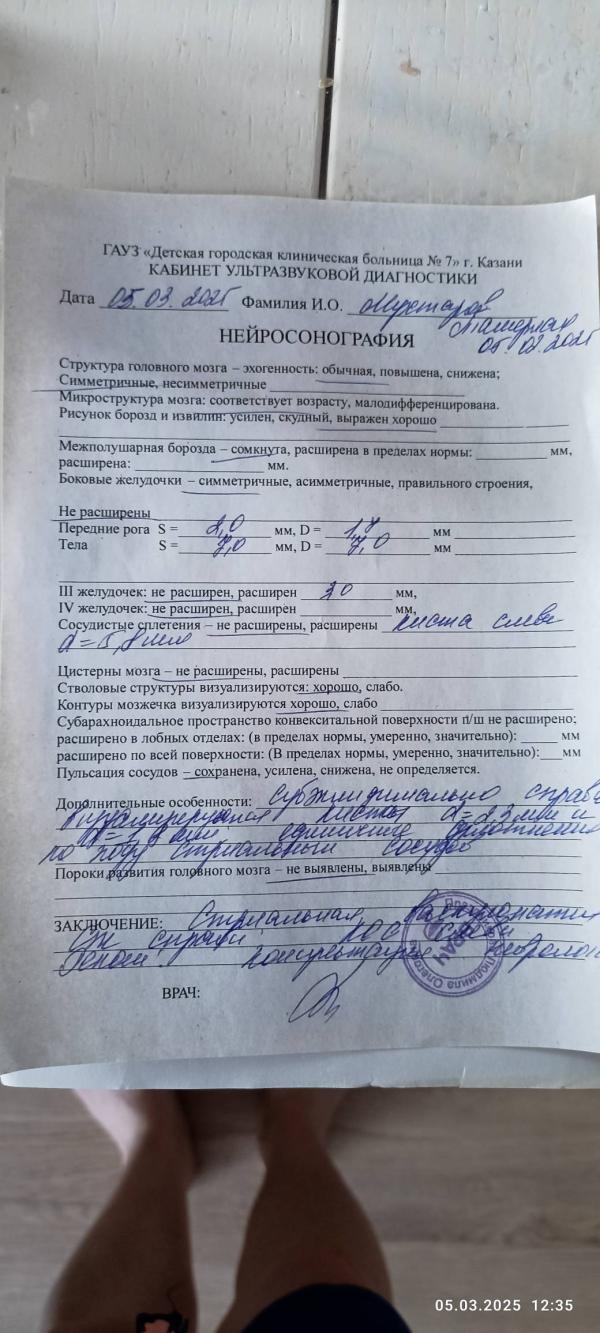 ГАУЗ «Детская городская клиническая больница № 7» г. Казани
КАБИНЕТ УЛЬТРАЗВУКОВОЙ ДИАГНОСТИКИ
Дата 05.03.2025 Фамилия И.О. Мухтаров
05.02.2025
НЕЙРОСОНОГРАФИЯ
Структура головного мозга – эхогенность: обычная, повышена, снижена;
Симметричные, несимметричные
Микроструктура мозга: соответствует возрасту, малодифференцирована.
Рисунок борозд и извилин: усилен, скудный, выражен хорошо
Межполушарная борозда – сомкнута, расширена в пределах нормы: мм,
расширена: мм.
Боковые желудочки – симметричные, асимметричные, правильного строения,
Не расширены
Передние рога S = 2,0 мм, D = 1,7 мм
Тела S = 7,0 мм, D = 7,0 мм
III желудочек: не расширен, расширен 20 мм,
IV желудочек: не расширен, расширен мм,
Сосудистые сплетения – не расширены, расширены киста слева
d = 5,8 мм
Цистерны мозга – не расширены, расширены
Стволовые структуры визуализируются: хорошо, слабо.
Контуры мозжечка визуализируются хорошо, слабо
Субарахноидальное пространство конвекситальной поверхности п/ш не расширено;
расширено в лобных отделах: (в пределах нормы, умеренно, значительно): мм
расширено по всей поверхности: (В пределах нормы, умеренно, значительно): мм
Пульсация сосудов – сохранена, усилена, снижена, не определяется.
Дополнительные особенности: субэпендимально справа
киста d = 2,3 мм и
единичные уплотнения
по ходу стриальных сосудов
Пороки развития головного мозга – не выявлены, выявлены
ЗАКЛЮЧЕНЕ: Стриальная
справа
ВРАЧ
Людмила
ВРАЧ:
05.03.2025 12:35